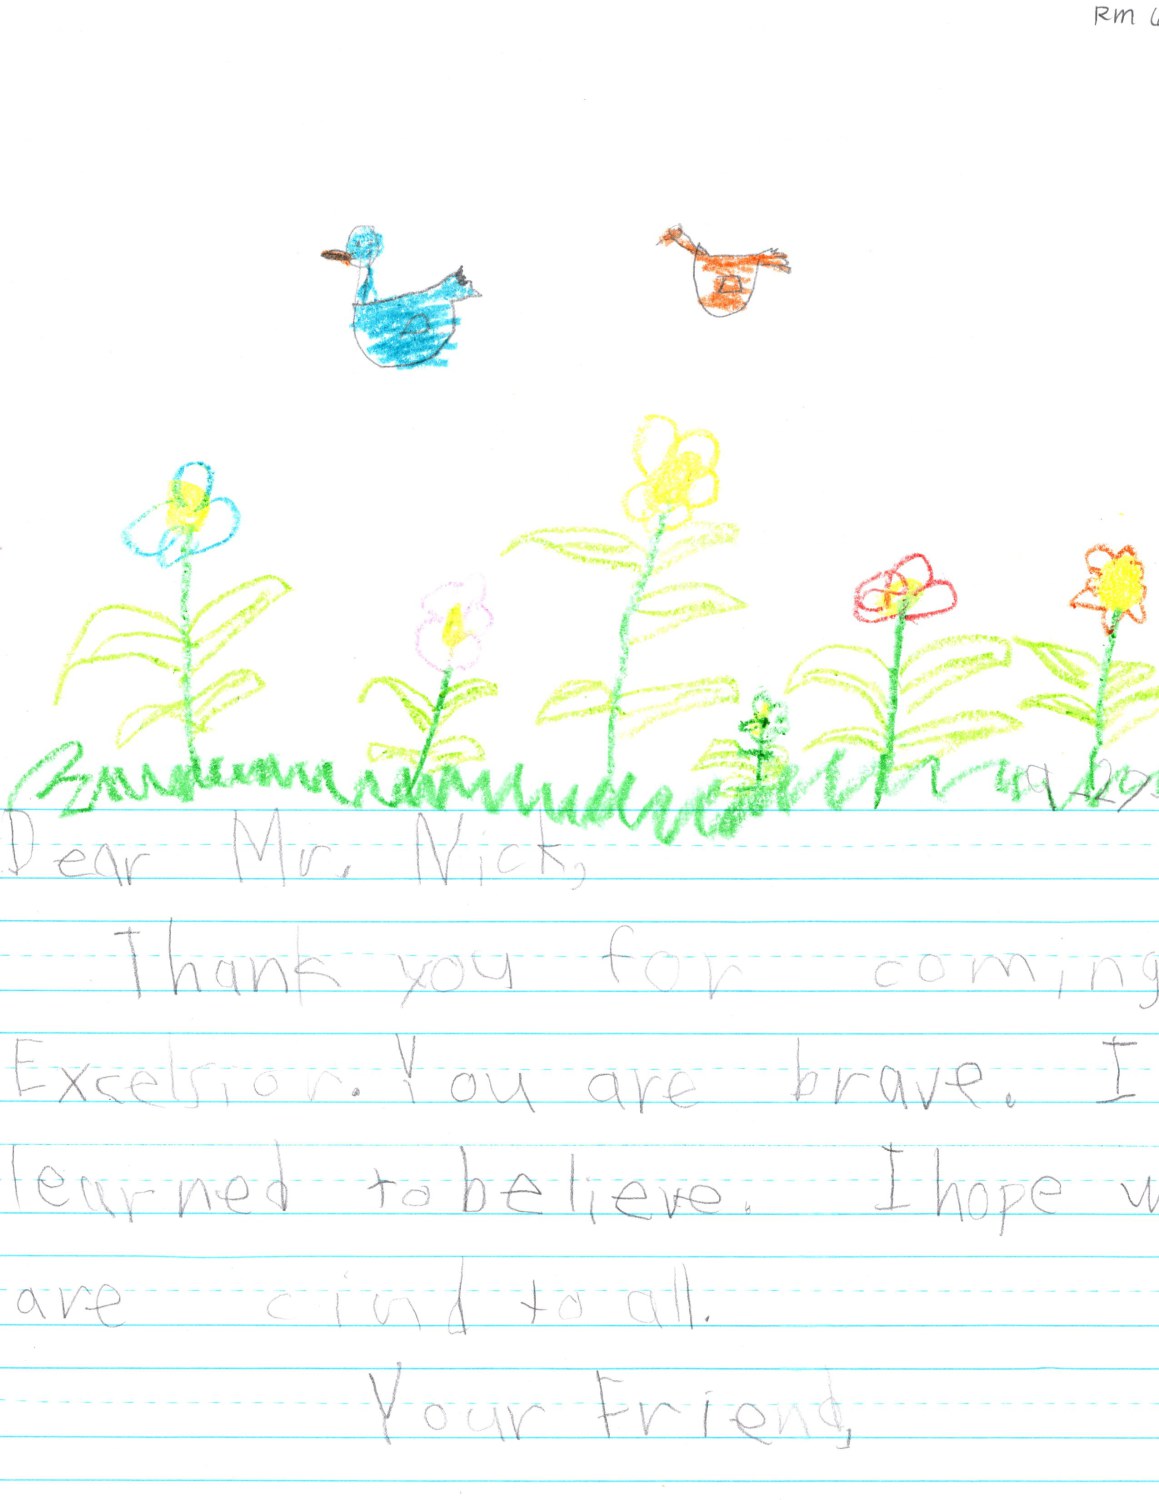 Rm
9-29
Dear Mr. Nick,
Thank you for coming
Excelsior. You are brave. I
learned to believe. I hope
are cind to all.
Your Friend,